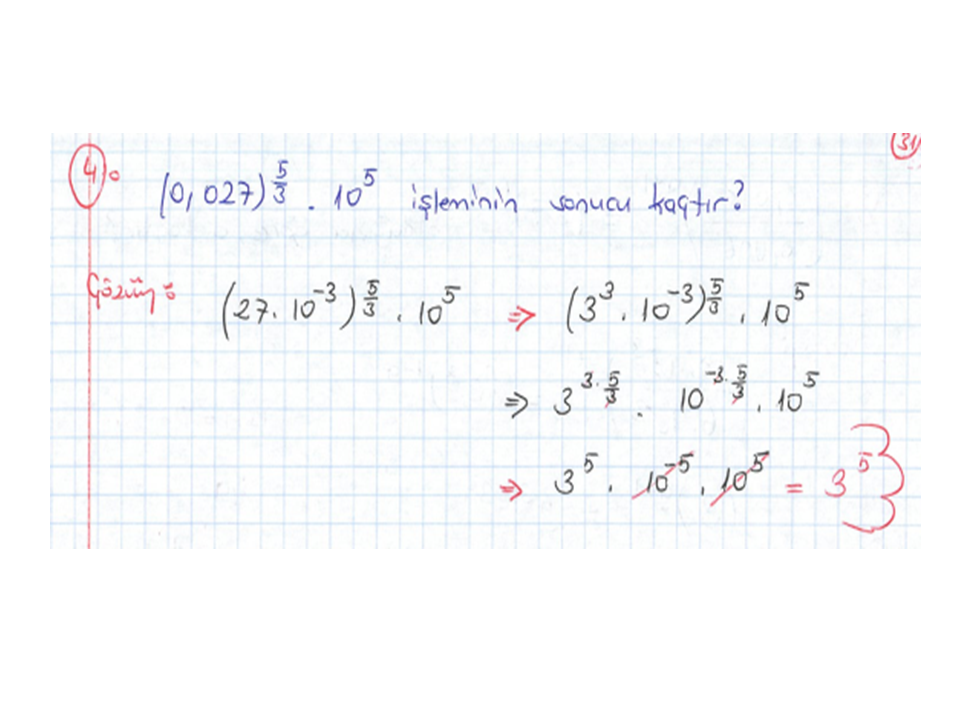 31
4) (0,027)^(5/3) . 10^5 işleminin sonucu kaçtır?
Çözüm: (27.10^-3)^(5/3) . 10^5 ⇒ (3^3 . 10^-3)^(5/3) . 10^5
⇒ 3^(3.5/3) . 10^(-3.5/3) . 10^5
⇒ 3^5 . 10^-5 . 10^5 = 3^5